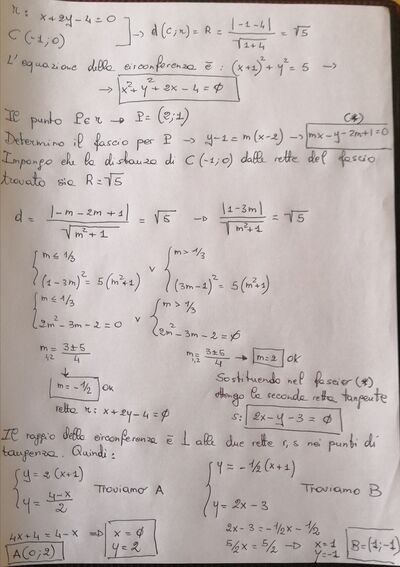 r: x+2y-4=0
C(-1;0) → d(C;r) = R = |-1-4|/√(1+4) = √5
L'equazione della circonferenza è: (x+1)²+y²=5 →
→ x²+y²+2x-4=0
Il punto P∈r → P=(2;1) (*)
Determino il fascio per P → y-1=m(x-2) → mx-y-2m+1=0
Impongo che la distanza di C(-1;0) dalle rette del fascio
trovato sia R=√5
d = |-m-2m+1|/√(m²+1) = √5 → |1-3m|/√(m²+1) = √5
{m≤1/3 v {m>1/3
{(1-3m)²=5(m²+1) {(3m-1)²=5(m²+1)
{m≤1/3 v {m>1/3
{2m²-3m-2=0 {2m²-3m-2=0
m₁,₂=(3±5)/4 m₁,₂=(3±5)/4 → m=2 OK
↓
m=-1/2 OK
Sostituendo nel fascio (*)
ottengo la seconda retta tangente
retta r: x+2y-4=0
s: 2x-y-3=0
Il raggio della circonferenza è ⊥ alle due rette r,s nei punti di
tangenza. Quindi:
{y=2(x+1) {y=-1/2(x+1)
Troviamo A Troviamo B
{y=(4-x)/2 {y=2x-3
4x+4=4-x ⇒ x=0 2x-3=-1/2x-1/2
y=2 5/2x=5/2 → x=1
y=-1 B=(1;-1)
A(0;2)